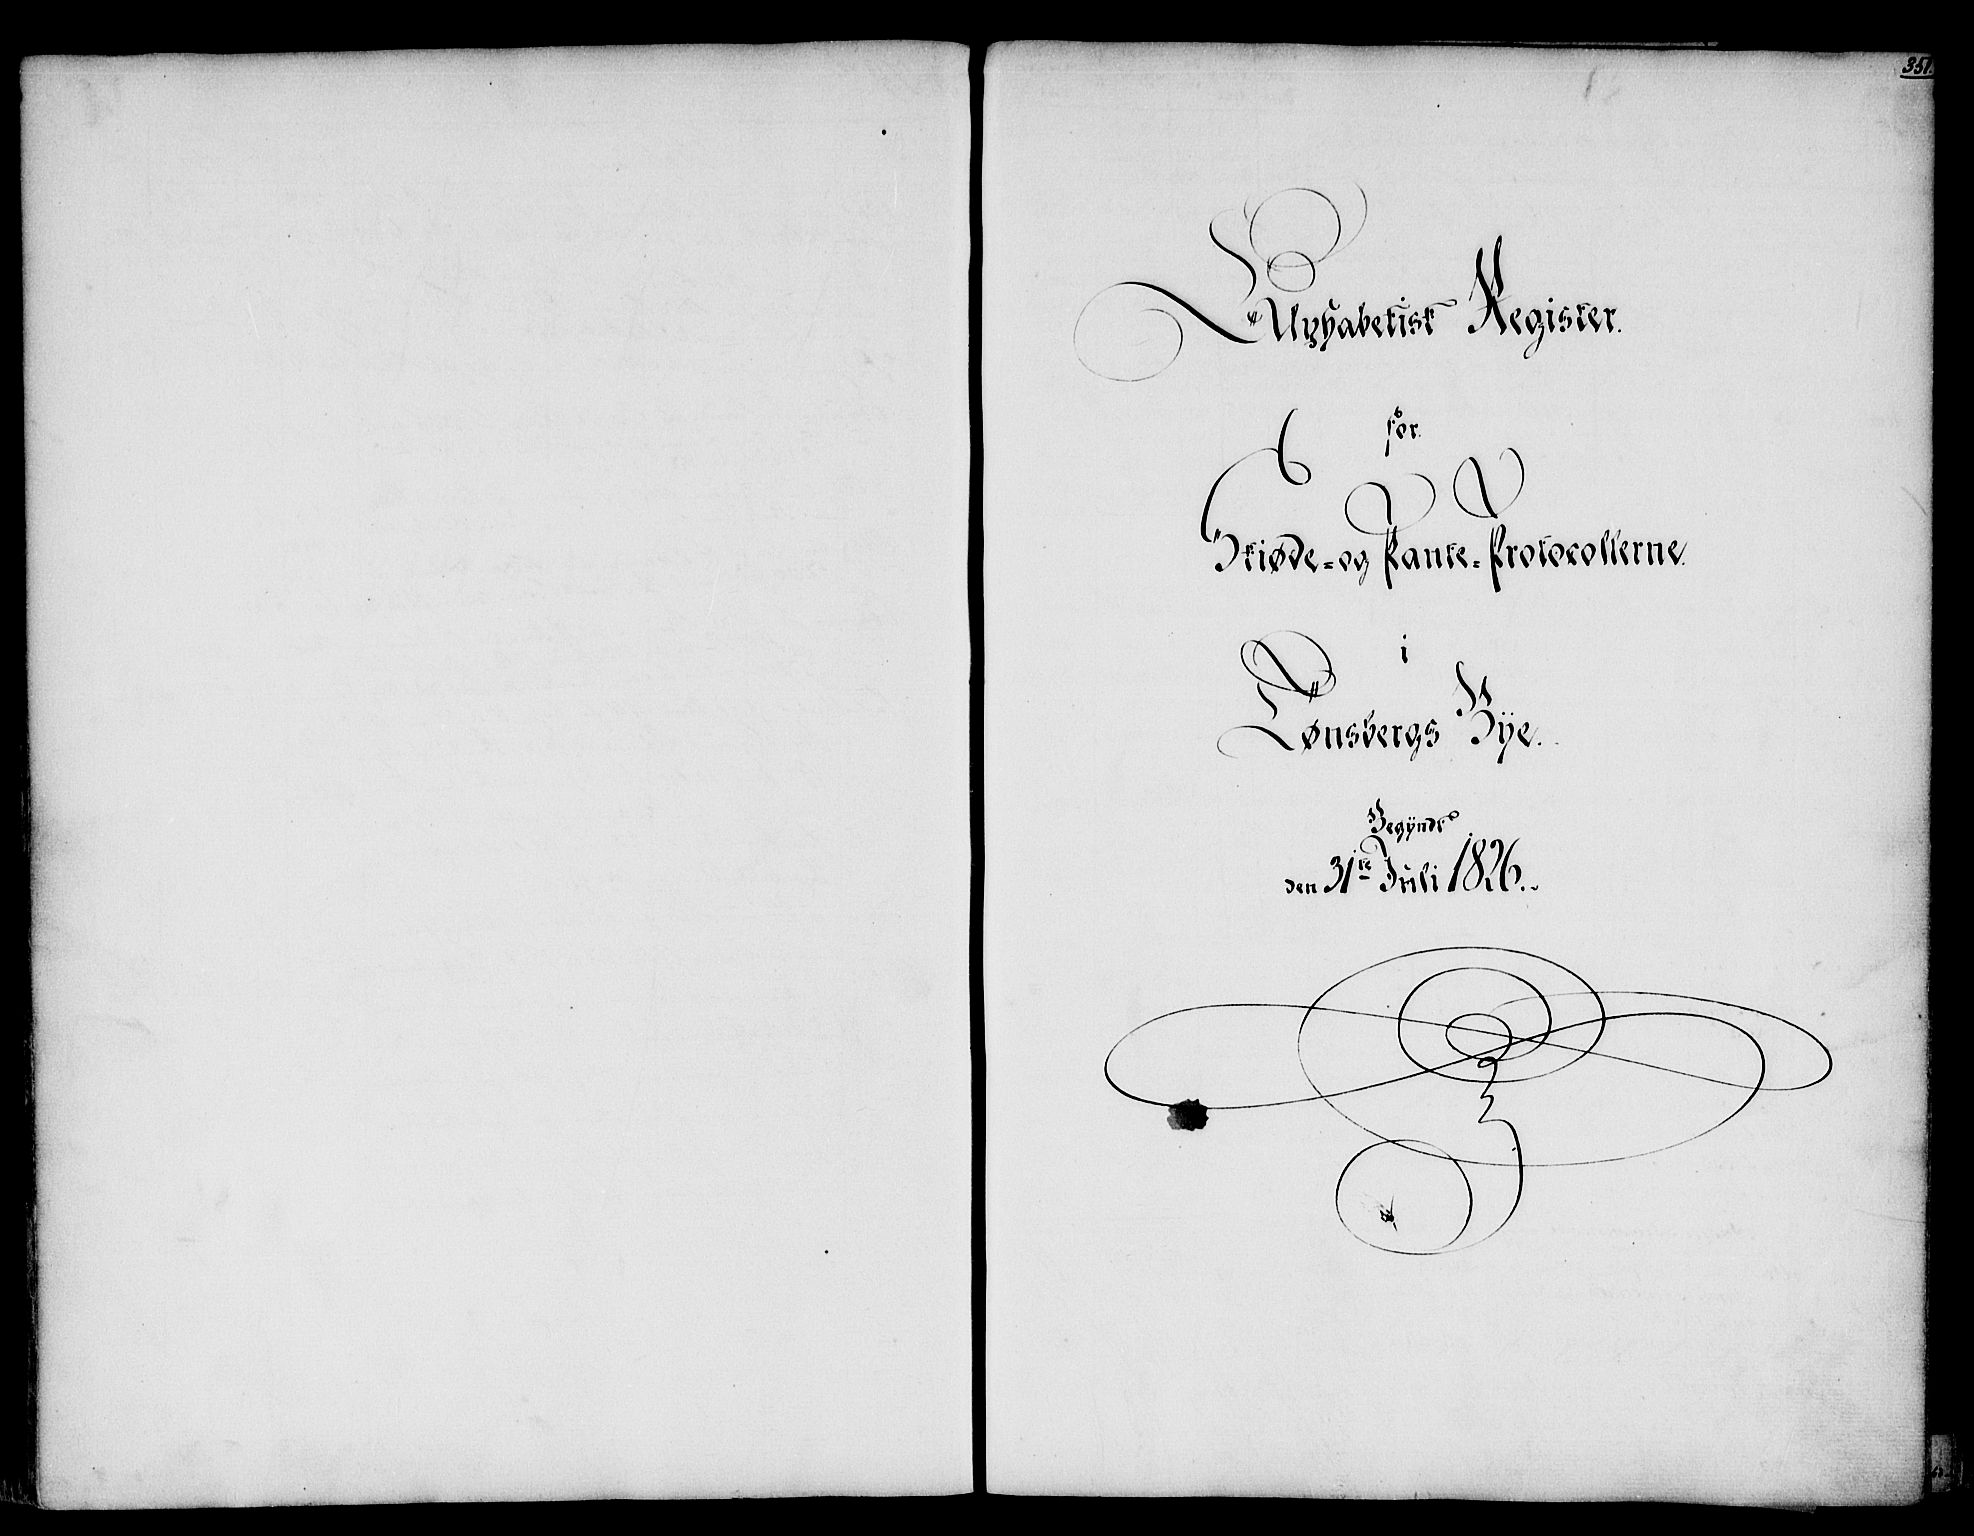 351.
Alphabetisk Register.
for
Skiøde- og Pante-Protocollerne.
i
Tønsbergs Bÿe.
Begÿndt
den 31te Juli 1826.